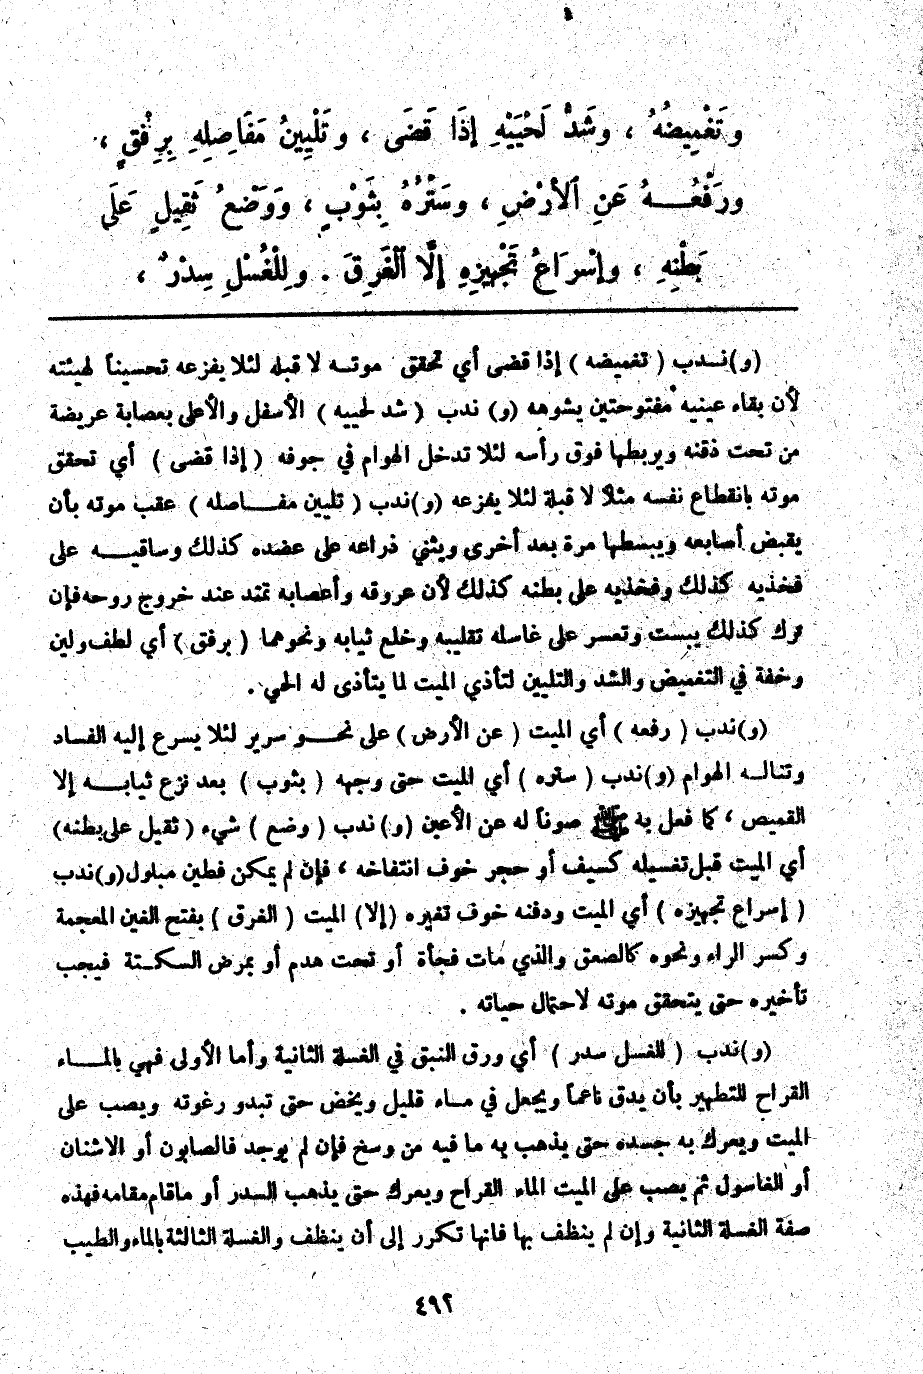 وتَغْمِيضُهُ ، وشَدُّ لَحْيَيْهِ إذَا قَضَى ، وتَلْيِينُ مَفَاصِلِهِ بِرِفْقٍ ،
ورَفْعُـــهُ عَنِ ٱلأرْضِ ، وسَتْرُهُ بِثَوْبٍ ، وَوَضْعُ ثَقِيلٍ عَلَى
بَطْنِهِ ، وإسْرَاعُ تَجْهِيزِهِ إلَّا ٱلْغَرِقَ . ولِلْغُسْلِ سِدْرٌ ،
(و)نـدب ( تغميضه ) إذا قضى أي تحقق موتـه لا قبله لئلا يفزعه تحسيناً لهيئته
لأن بقاء عينيه مفتوحتين يشوهه (و) ندب ( شد لحييه ) الأسفل والأعلى بعصابة عريضة
من تحت ذقنه ويربطها فوق رأسه لئلا تدخل الهوام في جوفه ( إذا قضى ) أي تحقق
موته بانقطاع نفسه مثلاً لا قبله لئلا يفزعه (و)ندب ( تليين مفـــاصله ) عقب موته بأن
يقبض أصابعه ويبسطها مرة بعد أخرى ويثني ذراعه على عضده كذلك وساقيـــه على
فخذيه كذلك وفخذيه على بطنه كذلك لأن عروقه وأعصابه تمتد عند خروج روحه فإن
ترك كذلك يبست وتعسر على غاسله تقليبه وخلع ثيابه ونحوهما ( برفق ) أي لطف ولين
وخفة في التغميض والشد والتليين لتأذي الميت لما يتأذى له الحي .
(و)ندب ( رفعه ) أي الميت ( عن الأرض ) على نحـــو سرير لئلا يسرع إليه الفساد
وتنالـه الهوام (و)ندب ( ستره ) أي الميت حتى وجهه ( بثوب ) بعد نزع ثيابـــه إلا
القميص ، كما فعل به ﷺ صوناً له عن الأعين (و) ندب ( وضع ) شيء ( ثقيل على بطنه)
أي الميت قبل تغسيله كسيف أو حجر خوف انتفاخه ، فإن لم يمكن فطين مبلول(و)ندب
( إسراع تجهيزه ) أي الميت ودفنه خوف تغيره (إلا) الميت ( الغرق ) بفتح الغين المعجمة
وكسر الراء ونحوه كالصعق والذي مات فجأة أو تحت هدم أو بمرض السكـتة فيجب
تأخيره حتى يتحقق موته لاحتمال حياته .
(و)ندب ( للغسل سدر ) أي ورق النبق في الغسلة الثانية وأما الأولى فهي بالمـــاء
القراح للتطهير بأن يدق ناعماً ويجعل في مـاء قليل ويخض حتى تبدو رغوته ويصب على
الميت ويعرك به جسده حتى يذهب به ما فيه من وسخ فإن لم يوجد فالصابون أو الاشنان
أو الغاسول ثم يصب على الميت الماء القراح ويعرك حتى يذهب السدر أو ماقام مقامه فهذه
صفة الغسلة الثانية وإن لم ينظف بها فانها تكرر إلى أن ينظف والغسلة الثالثة بالماء والطيب
٤٩٢